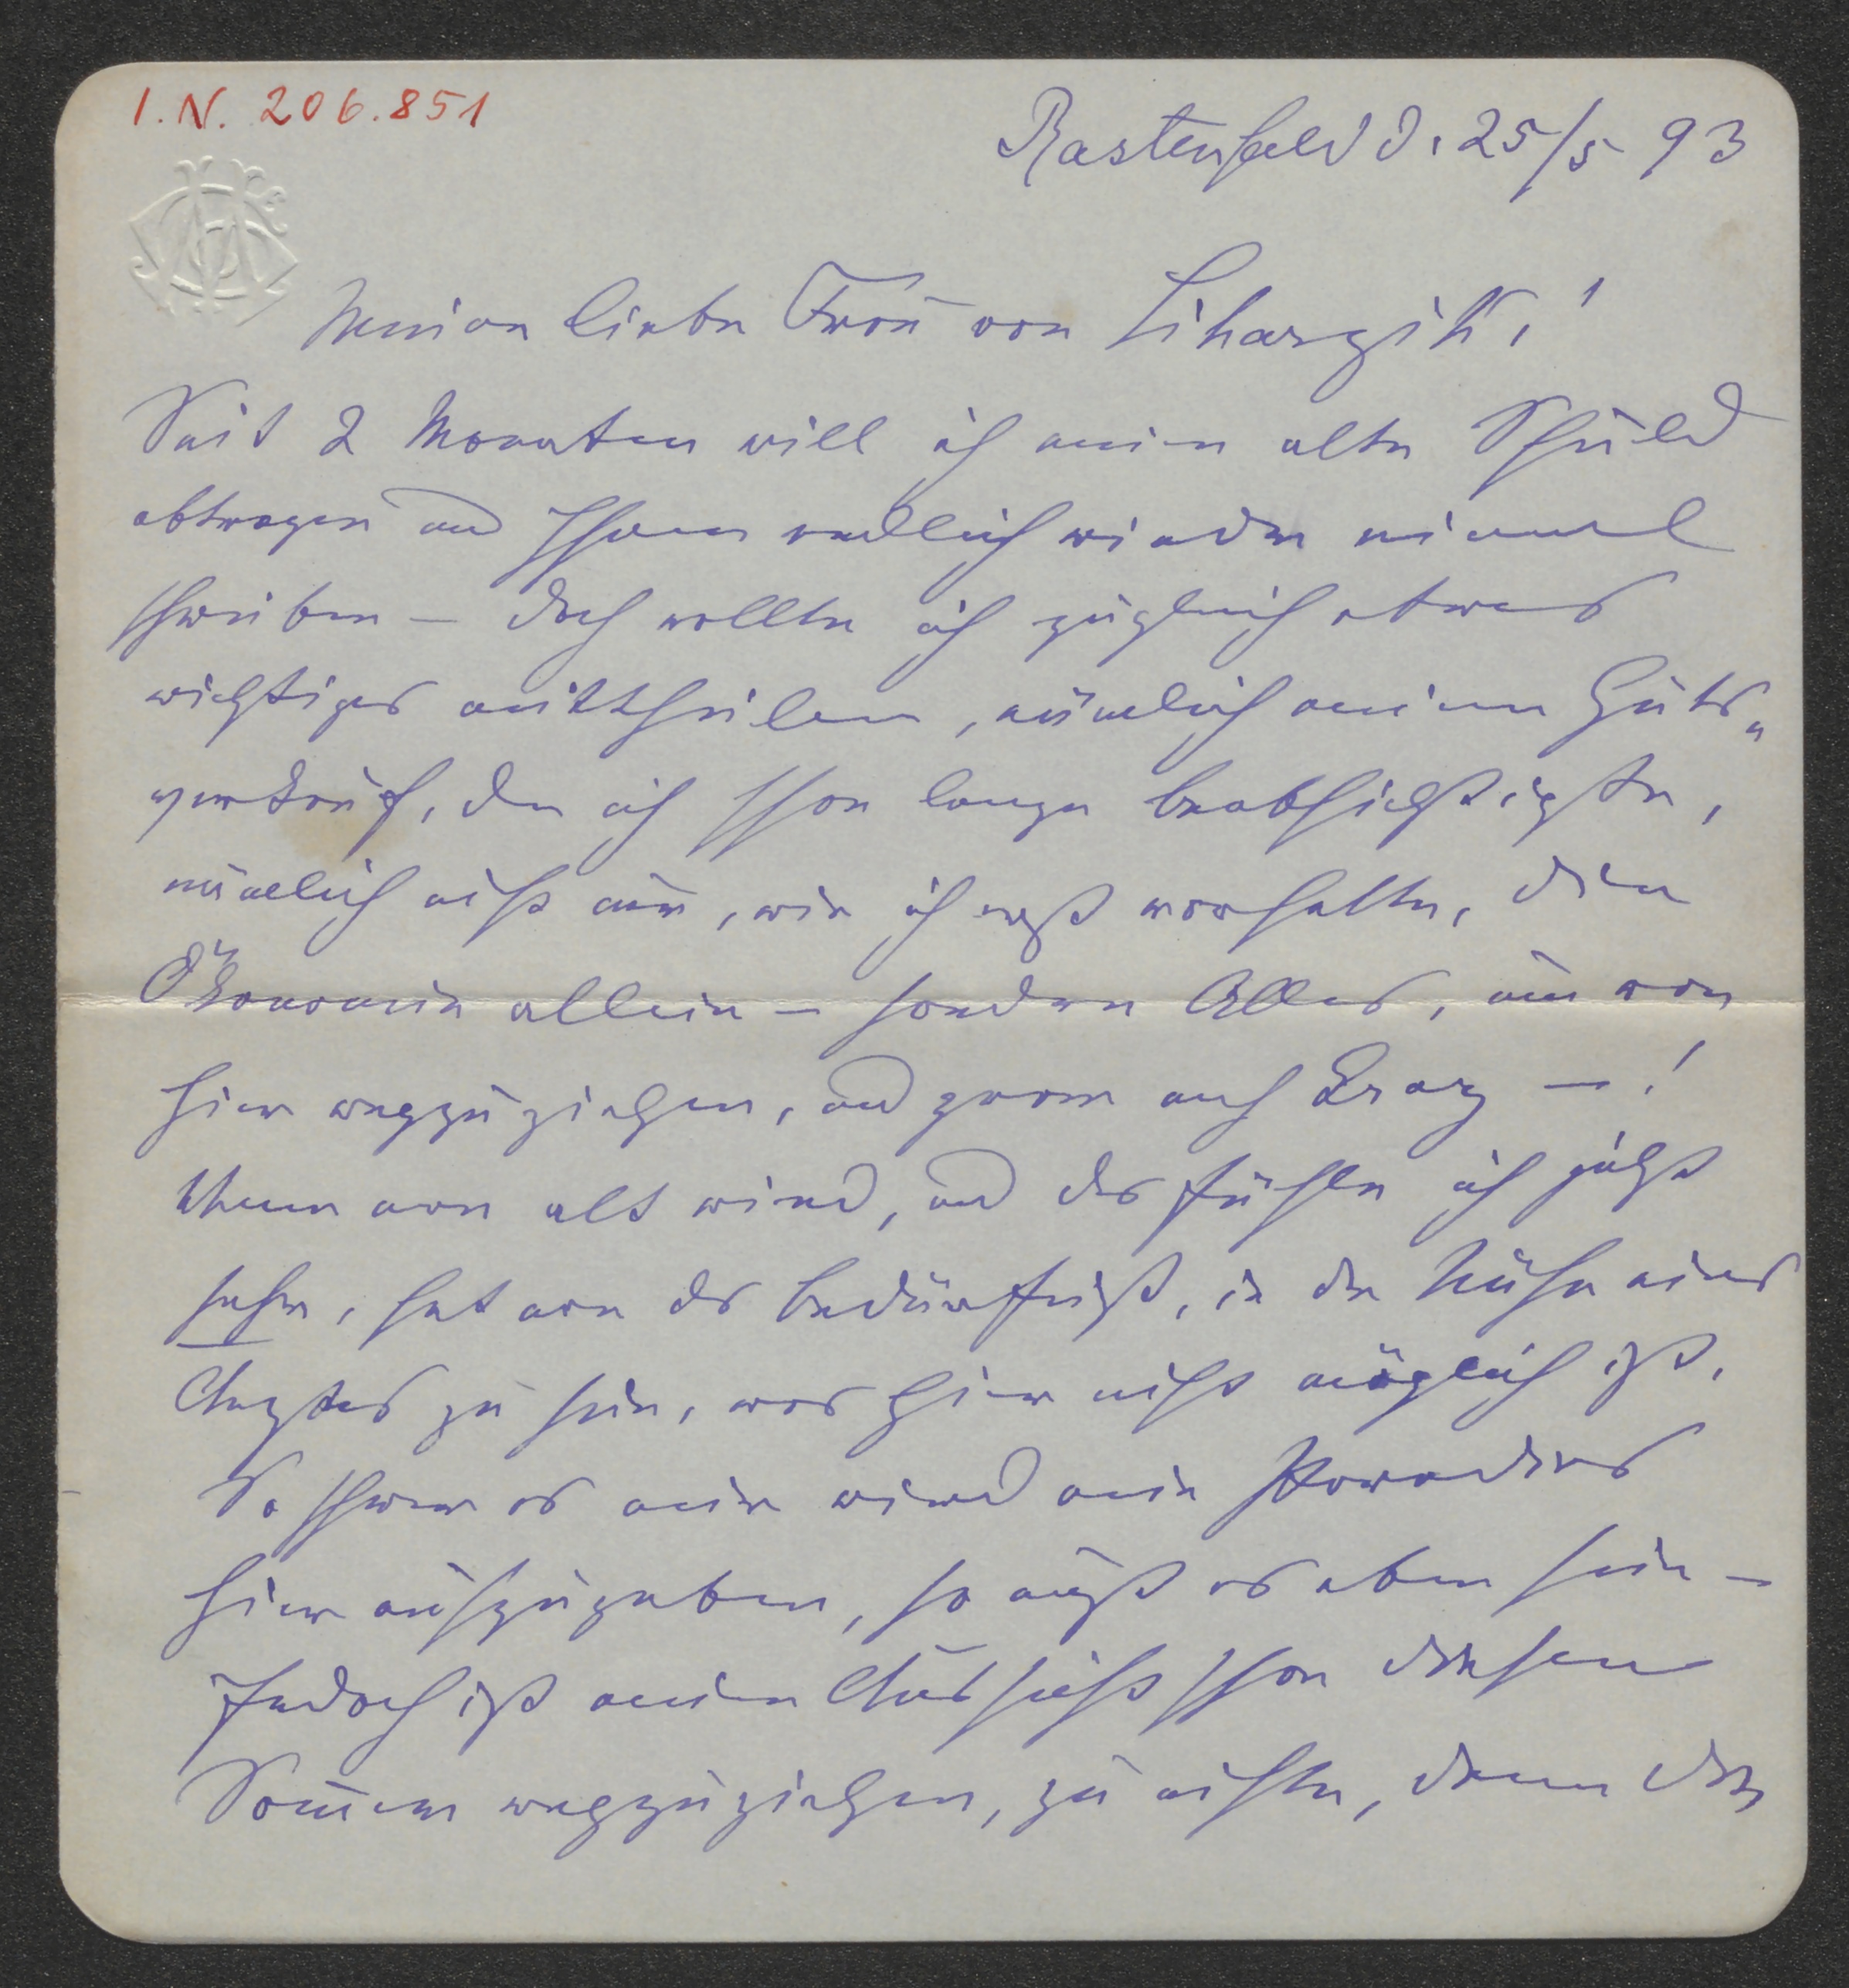 I.N. 206.851
Rastenfeld d. 25/5 93
Meine liebe Frau von Liharzik!
Seit 2 Monaten will ich meine alte Schuld
abtragen und Ihnen endlich wieder einmal
schreiben – doch wollte ich zugleich etwas
wichtiges mittheilen, nämlich meinen Guts„
verkauf, den ich schon lange beabsichtigte,
nämlich nicht nur, wie ich erst vorhatte, die
Ökonomie allein – sondern Alles, um von
hier wegzuziehen, und zwar nach Graz – !
Wenn man alt wird, und das fühle ich jetzt
sehr, hat man das Bedürfniß, in der Nähe eines
Arztes zu sein, was hier nicht möglich ist.
So schwer es mir wird mein Paradies
hier aufzugeben, so muß es eben sein –
Jedoch ist meine Aussicht schon diesen
Sommer wegzuziehen, zu nichte, denn der